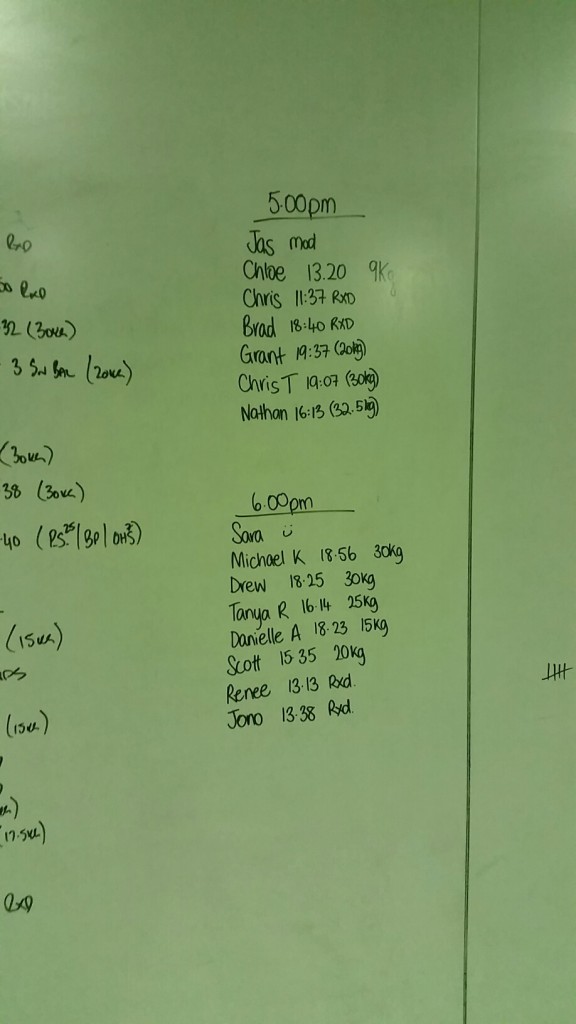 RXD
RXD
32 (30KG)
3
(20KG)
(30KG)
38 (30KG)
40
(15KG)
(15KG)
(17.5KG)
RXD
5.00pm
Jas mod
Chloe 13.20 9Kg
Chris 11:37 RXD
Brad 18:40 RXD
Grant 19:37 (20kg)
Chris T 19:07 (30kg)
Nathan 16:13 (32.5kg)
6.00pm
Sara
Michael K 18.56 30kg
Drew 18.25 30Kg
Tanya R 16.14 25Kg
Danielle A 18.23 15Kg
Scott 15.35 20Kg
Renee 13.13 Rxd.
Jono 13.38 Rxd.